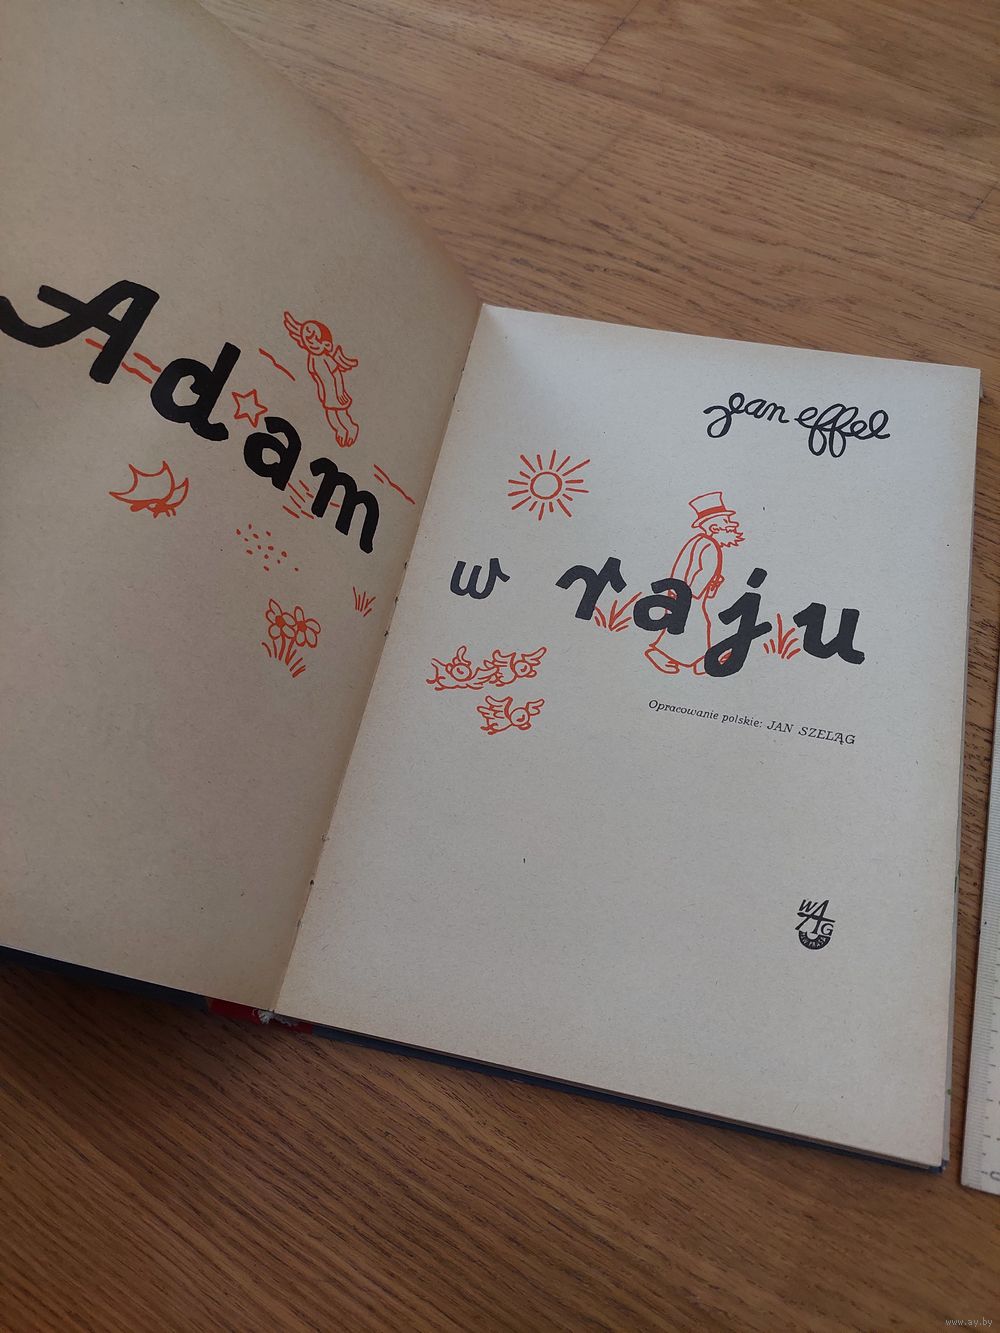 Adam
jean effel
w raju
Opracowanie polskie: JAN SZELĄG
WAG
www.ay.by